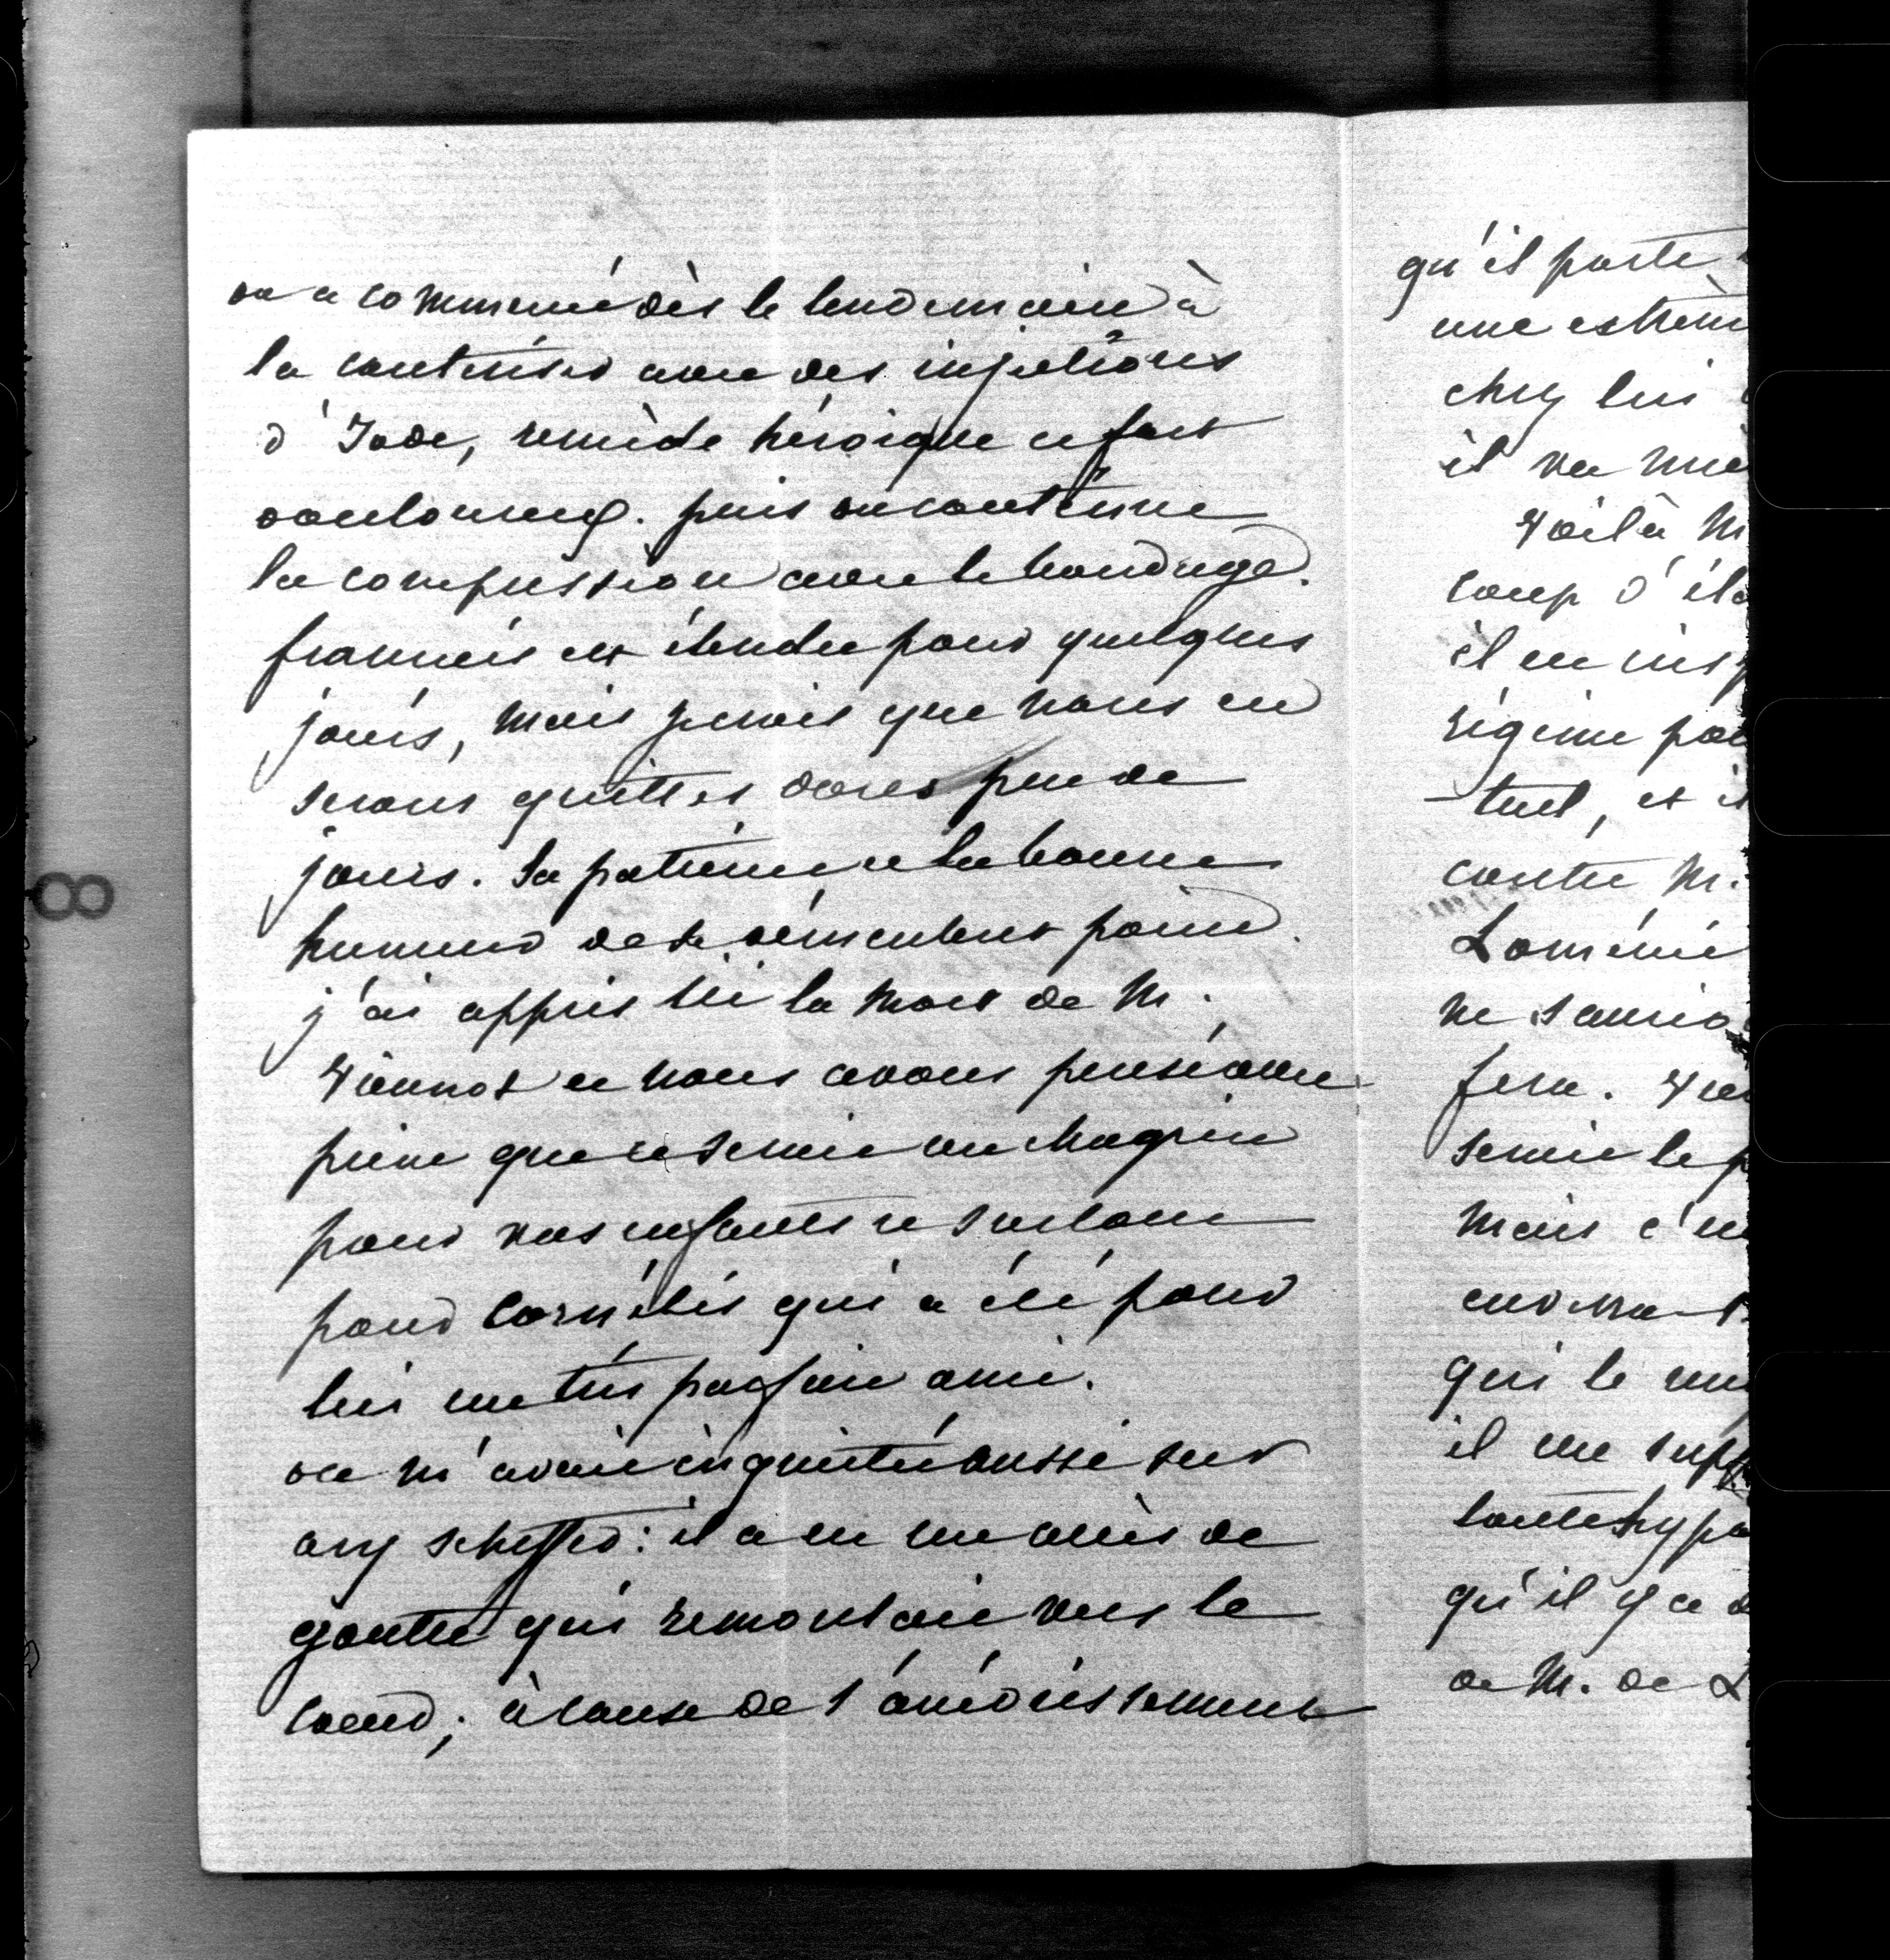 on a commencé dès le lendemain à
la cautériser avec des injections
d'Iode, remède héroique et fort
douloureux. puis on continue
la compression avec le bandage.
francis est étendu pour quelques
jours, mais je crois que nous en
serons quittes dans peu de
jours. Sa patience et la bonne
humeur ne se démentent point.
j'ai appris ici la mort de M.
et nous avons pensé avec
peine que ce serait un chagrin
pour vos enfants et surtout
pour Cornélis qui a été pour
lui un très parfait ami.
on m'avait inquiétée aussi sur
ary scheffer: il a eu un accès de
goutte qui remontait vers le
coeur; à cause de l'
qu'il porte
une extrêm
chez lui
il va mie
Voilà M
coup d'
il en
régime pou
-tuel, et i
contre M.
Loménie
ne saurio
fera.
serait le p
mais c'e
qui le
il me supp
toutes hypo
qu'il y a
de M. de L